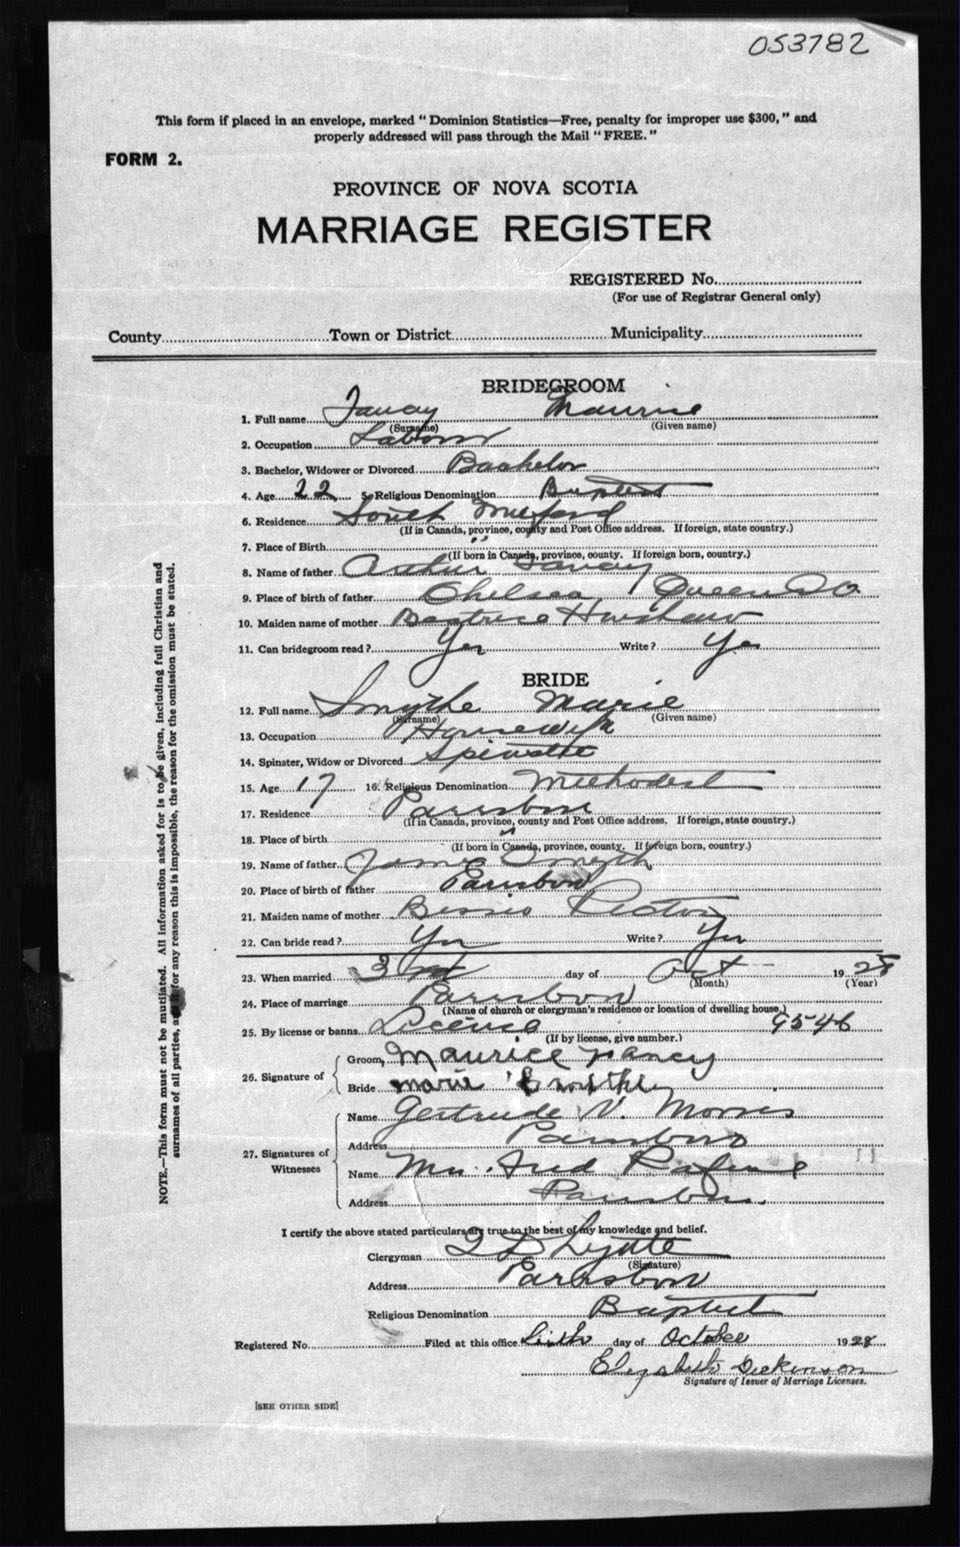 053782
This form if placed in an envelope, marked "Dominion Statistics—Free, penalty for improper use $300," and
properly addressed will pass through the Mail "FREE."
FORM 2.
PROVINCE OF NOVA SCOTIA
MARRIAGE REGISTER
REGISTERED No.
(For use of Registrar General only)
County Town or District Municipality
BRIDEGROOM
1. Full name Maurice
(Surname) (Given name)
2. Occupation Laborer
3. Bachelor, Widower or Divorced Bachelor
4. Age 22 5. Religious Denomination Baptist
6. Residence South Milford
(If in Canada, province, county and Post Office address. If foreign, state country.)
7. Place of Birth " "
(If born in Canada, province, county. If foreign born, country.)
8. Name of father Arthur
9. Place of birth of father Chelsea, Queens Co
10. Maiden name of mother Beatrice
11. Can bridegroom read? Yes Write? Yes
BRIDE
12. Full name Smythe Marie
(Surname) (Given name)
13. Occupation Housewife
14. Spinster, Widow or Divorced Spinster
15. Age 17 16. Religious Denomination Methodist
17. Residence Parrsboro
(If in Canada, province, county and Post Office address. If foreign, state country.)
18. Place of birth "
(If born in Canada, province, county. If foreign born, country.)
19. Name of father James Smyth
20. Place of birth of father Parrsboro
21. Maiden name of mother Rector
22. Can bride read? Yes Write? Yes
23. When married 3rd day of Oct 1928
(Month) (Year)
24. Place of marriage Parrsboro
(Name of church or clergyman's residence or location of dwelling house.)
25. By license or banns License 9546
(If by license, give number.)
26. Signature of
Groom, Maurice
Bride Marie
27. Signatures of Witnesses
Name Gertrude V. Morris
Address Parrsboro
Name Mrs. Fred
Address Parrsboro
I certify the above stated particulars are true to the best of my knowledge and belief.
Clergyman
(Signature)
Address Parrsboro
Religious Denomination Baptist
Registered No. Filed at this office day of October 1928
Elizabeth Dickinson
Signature of Issuer of Marriage Licenses.
[SEE OTHER SIDE]
NOTE.—This form must not be mutilated. All information asked for is to be given, including full Christian and
surnames of all parties, and if for any reason this is impossible, the reason for the omission must be stated.